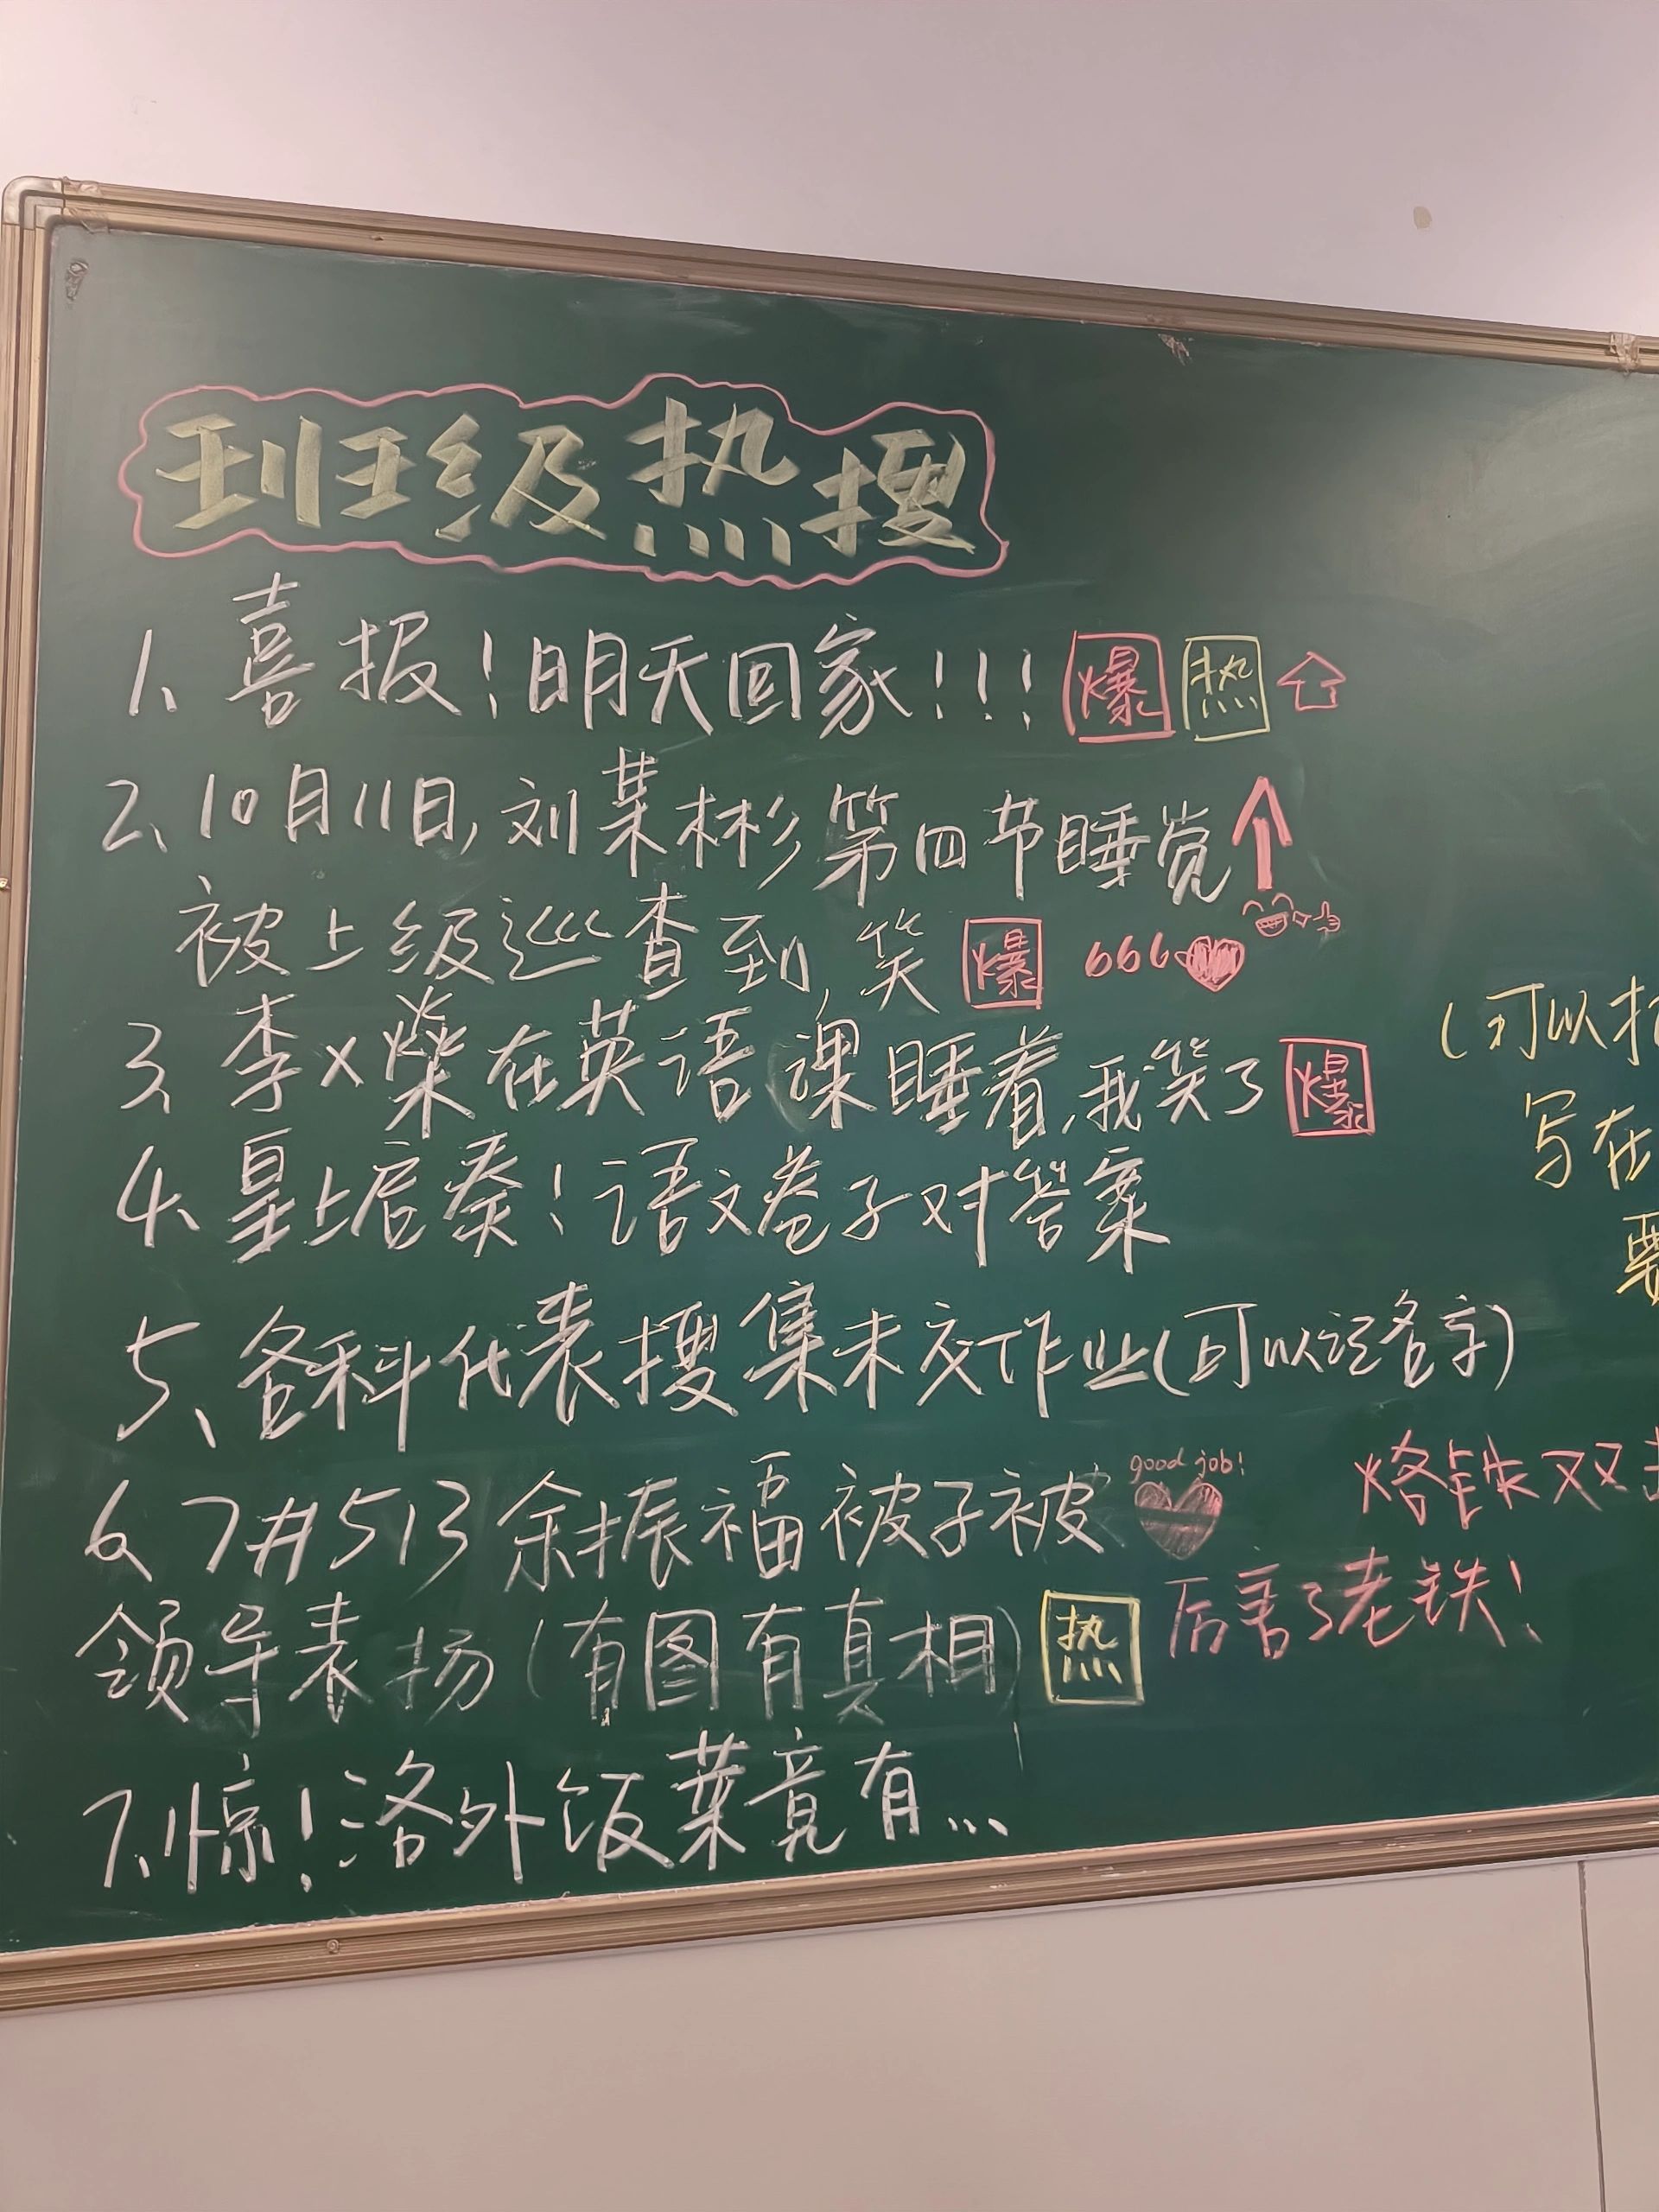 班级热搜
1、喜报！明天回家！！！ 爆 热
2、10月11日，刘某彬第四节睡觉
被上级巡查到，笑 爆 666
3、李X燊在英语课睡着，我笑了 爆
4、星上启奏！语文卷子对答案
5、各科代表搜集未交作业(可以记名字)
6、7#513余振福被子被 good job!
领导表扬(有图有真相) 热 厉害了老铁！
7、惊！洛外饭菜竟有...
(可以
写在
要
烙铁双